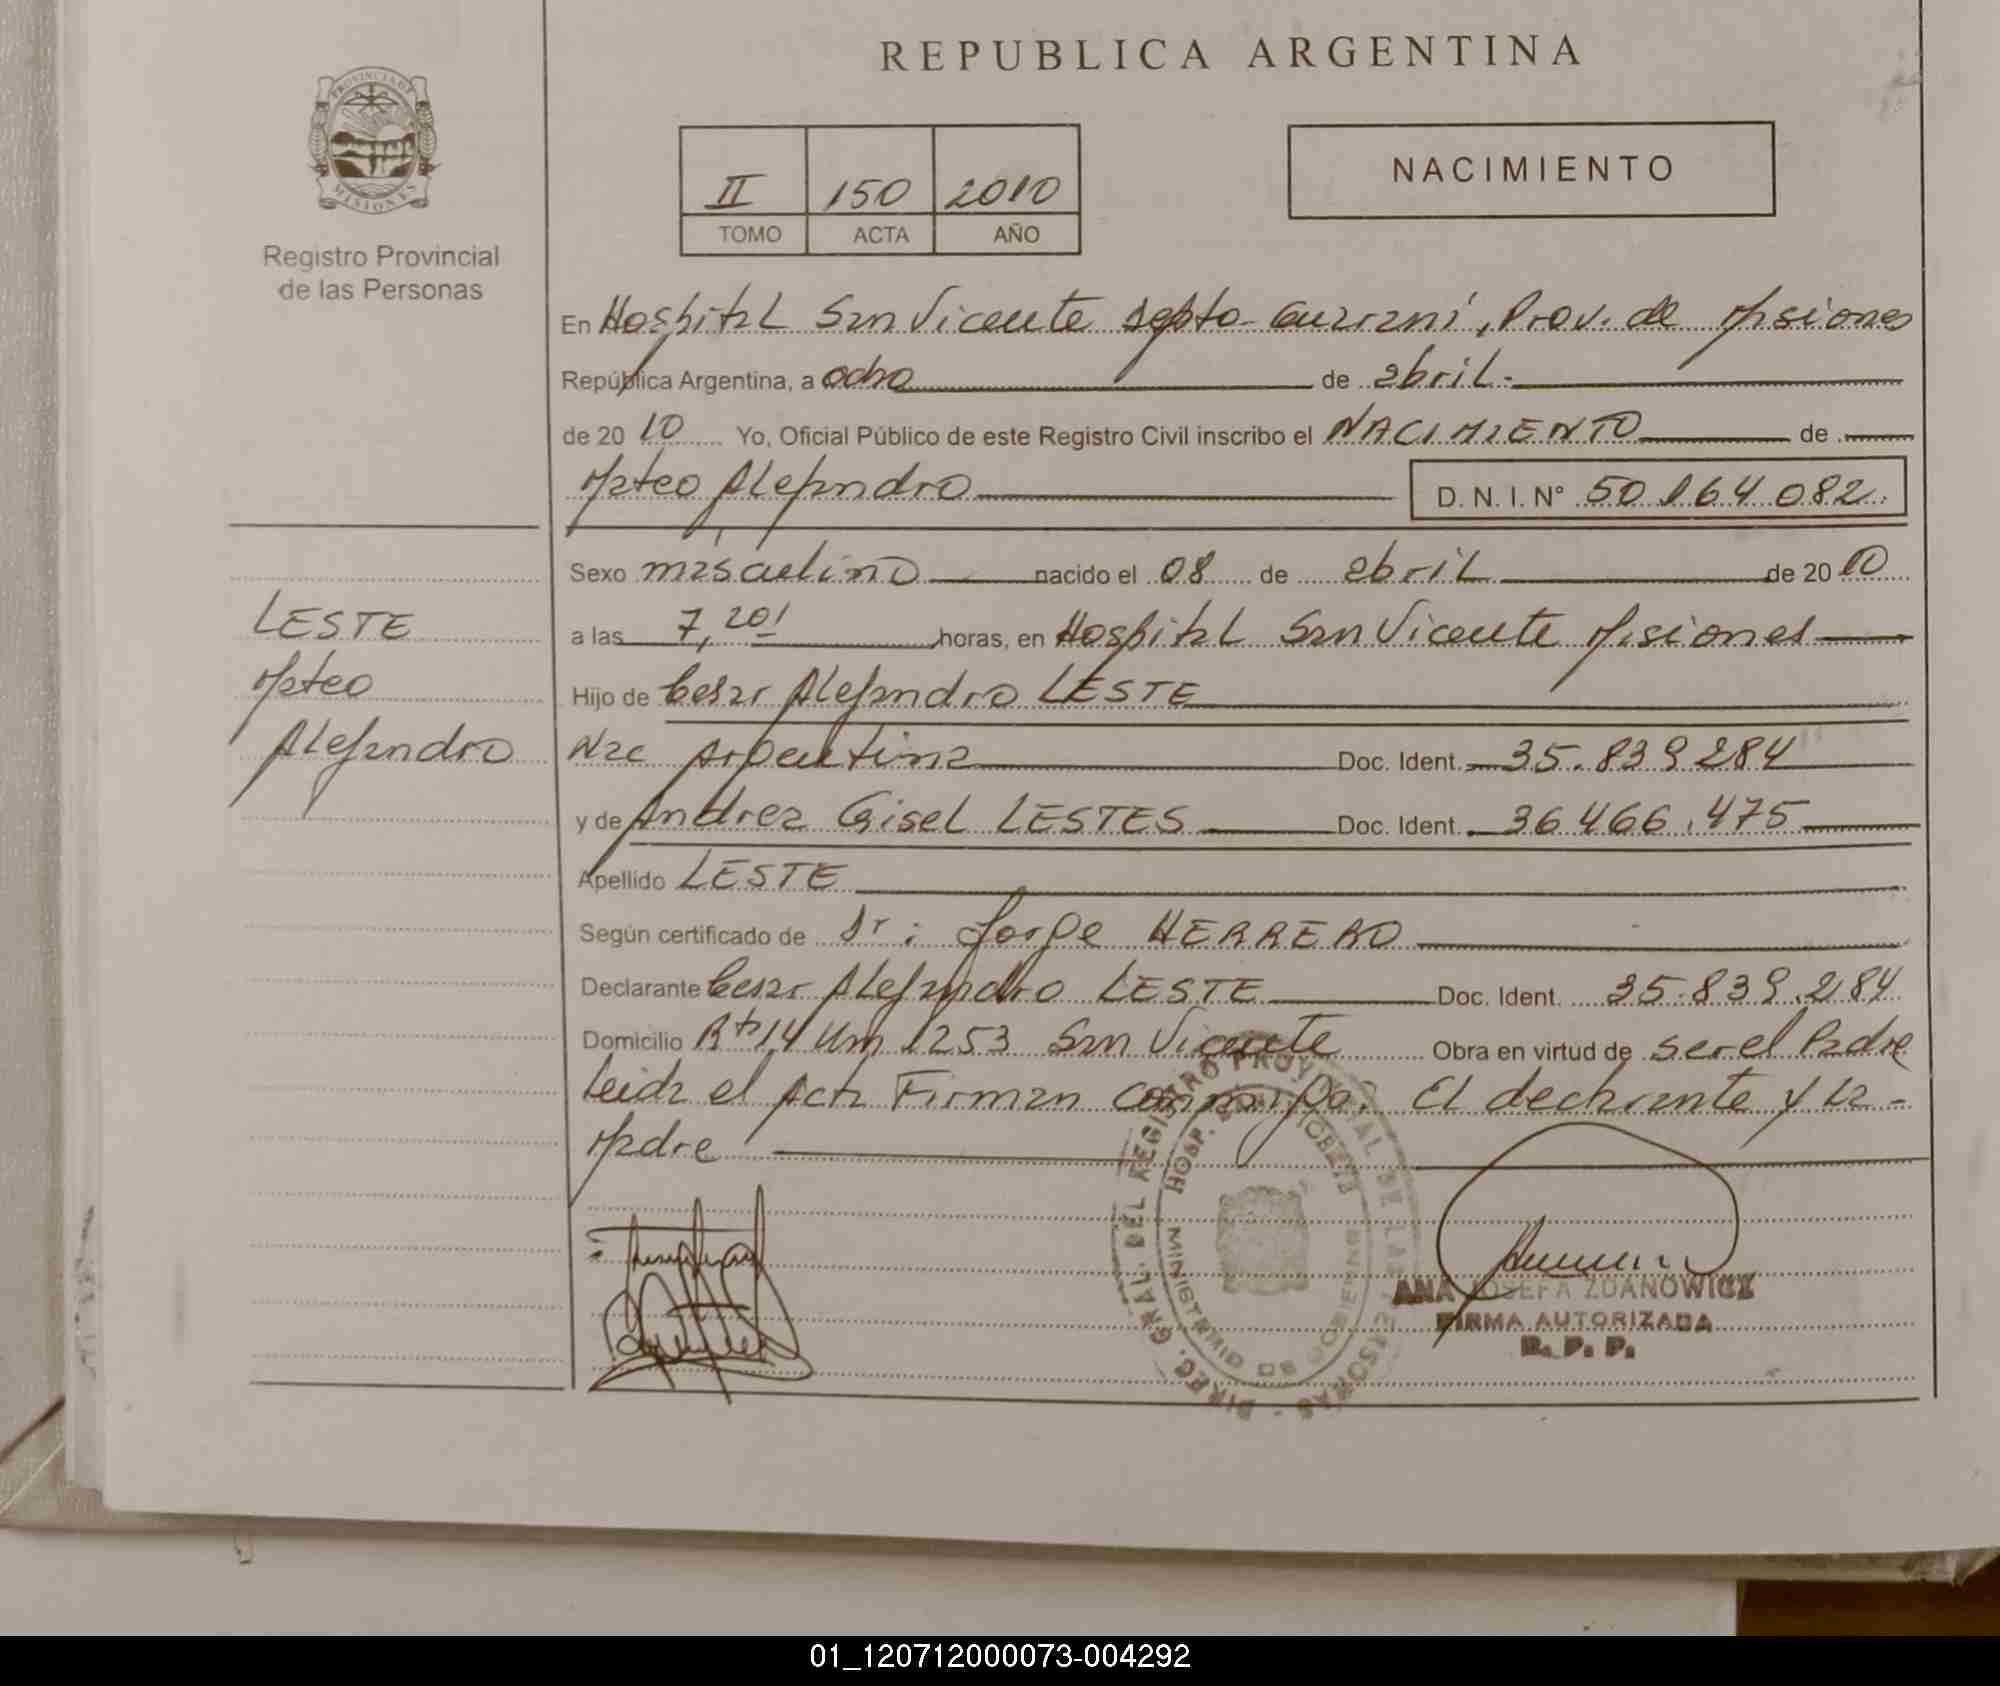 REPUBLICA ARGENTINA
PROVINCIA DE MISIONES
Registro Provincial
de las Personas
II 150 2010
TOMO ACTA AÑO
NACIMIENTO
En Hospital San Vicente Depto. Guarani, Prov. de Misiones
República Argentina, a ocho de abril.
de 20 10 Yo, Oficial Público de este Registro Civil inscribo el NACIMIENTO de
Mateo Alejandro D. N. I. N° 50.164.082.
Sexo masculino nacido el 08 de abril de 20 10
a las 7,20' horas, en Hospital San Vicente Misiones
Hijo de Cesar Alejandro LESTE
Nac Argentina Doc. Ident. 35.839.284
y de Andrea Gisel LESTES Doc. Ident. 36.466.475
Apellido LESTE
Según certificado de Dr: Jorge HERRERO
Declarante Cesar Alejandro LESTE Doc. Ident. 35.839.284
Domicilio Rta 14 Km 1253 San Vicente Obra en virtud de ser el Padre
Leida el Acta Firman conmigo: El declarante y la
Madre
LESTE
Mateo
Alejandro
DIREC. GRAL. DEL REGISTRO PROVINCIAL DE LAS PERSONAS
HOSP.
MINISTERIO DE GOBIERNO
ANA JOSEFA ZDANOWICZ
FIRMA AUTORIZADA
R. P. P.
01_120712000073-004292